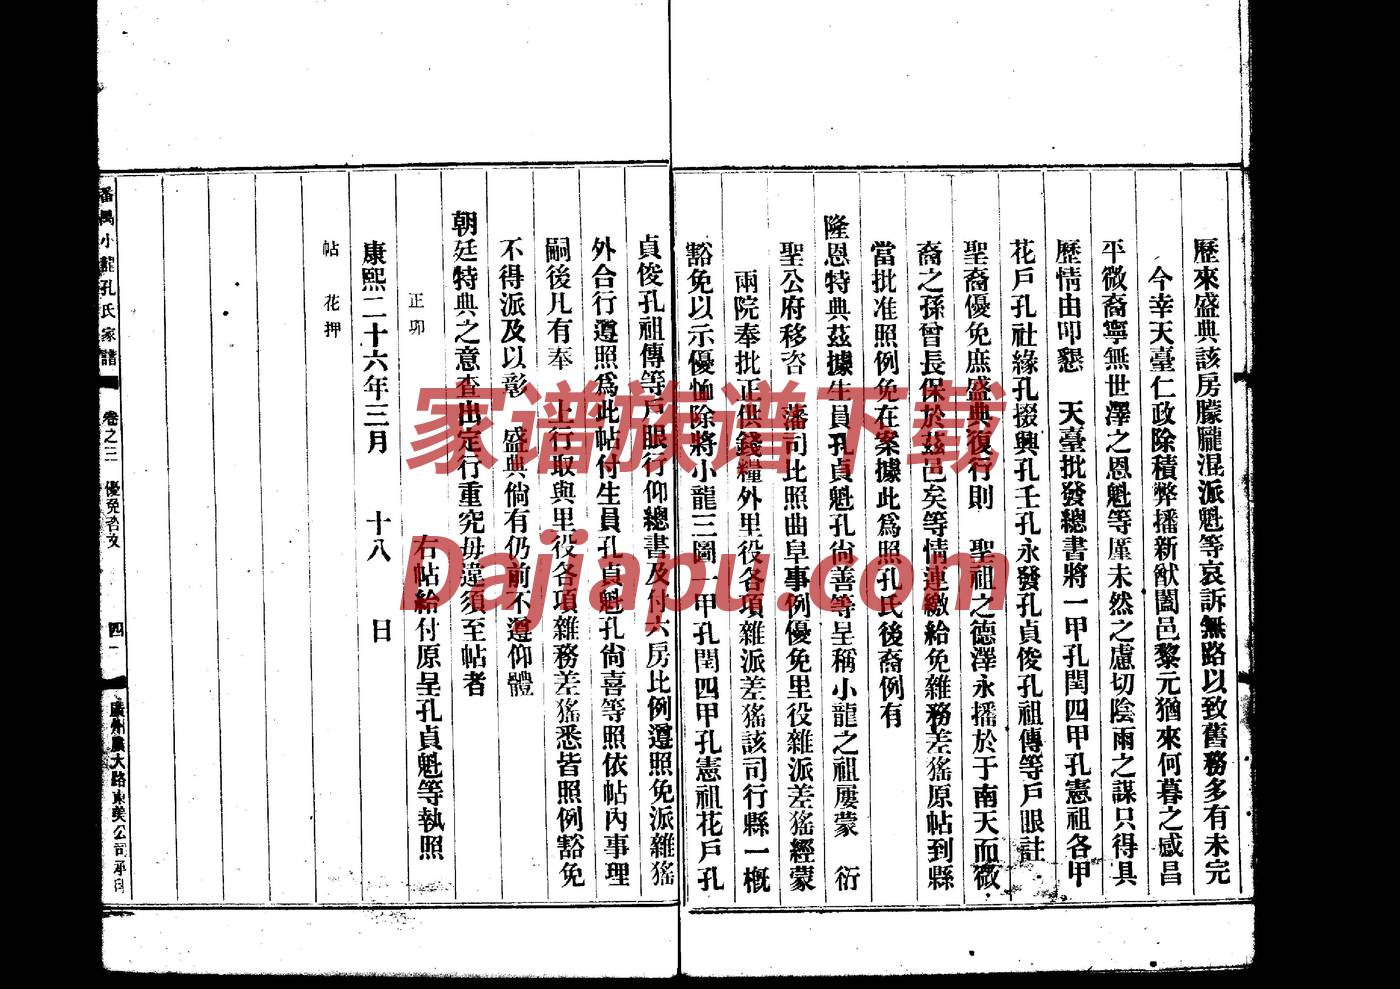 歷來盛典該房朦朧混派魁等哀訴無路以致舊務多有未完
今幸天臺仁政除積弊播新猷闔邑黎元猶來何暮之感昌
平微裔寧無世澤之恩魁等厪未然之慮切陰雨之謀只得具
歷情由叩懇　天臺批發總書將一甲孔閏四甲孔憲祖各甲
花戶孔社緣孔掇興孔壬孔永發孔貞俊孔祖傳等戶眼註
聖裔優免庶盛典復行則　聖祖之德澤永播於于南天而微
裔之孫曾長保於茲邑矣等情連繳給免雜務差猺原帖到縣
當批准照例免在案據此為照孔氏後裔例有
隆恩特典茲據生員孔貞魁孔尙善等呈稱小龍之祖屢蒙　衍
聖公府移咨　藩司比照曲阜事例優免里役雜派差猺經蒙
兩院奉批正供錢糧外里役各項雜派差猺該司行縣一槪
豁免以示優恤除將小龍三圖一甲孔閏四甲孔憲祖花戶孔
貞俊孔祖傳等戶眼行仰總書及付六房比例遵照免派雜猺
外合行遵照爲此帖付生員孔貞魁孔尙喜等照依帖內事理
嗣後凡有奉　上行取與里役各項雜務差猺悉皆照例豁免
不得派及以彰　盛典倘有仍前不遵仰體
朝廷特典之意查出定行重究毋違須至帖者
右帖給付原呈孔貞魁等執照
正卯
康熙二十六年三月　十八　日
帖　花押
番禺小龍孔氏家譜　卷之三　優免咨文　四一　廣州惠大路東美公司承印
家谱族谱下载
Dajiapu.com